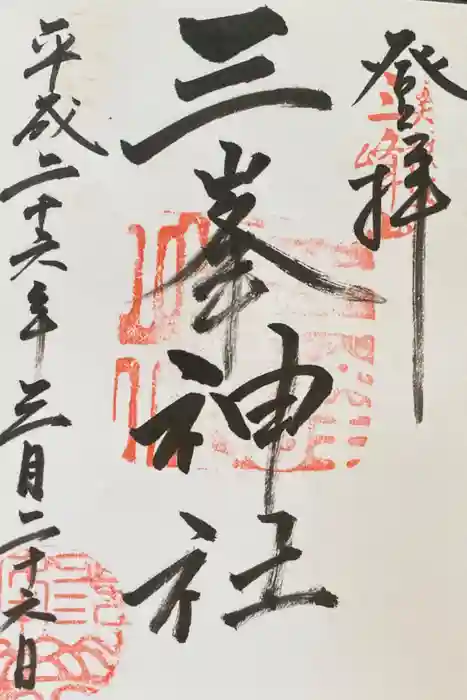 登拝
三峯神社
平成二十六年三月二十六日